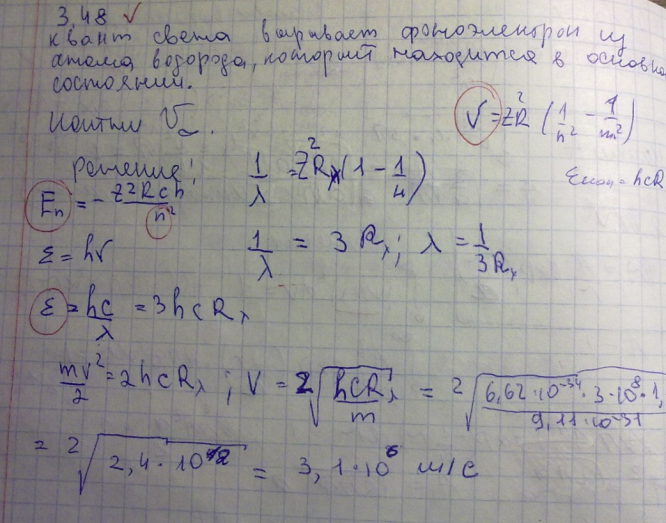 3.48 ✓
квант света вырывает фотоэлектрон из
атома водорода, который находится в основно
состоянии.
V = Z²R (1/n² − 1/m²)
Решение:
1/λ = Z²R (1 − 1/4)
Eₙ = − Z²Rch/n²
ε = hν
1/λ = 3Rλ; λ = 1/3Rλ
ε = hc/λ = 3hcRλ
mv²/2 = 2hcRλ; V = 2√(hcRλ/m) = 2√(6,62·10⁻³⁴·3·10⁸·1,/9,11·10⁻³¹)
= 2√(2,4·10¹²) = 3,1·10⁶ м/с